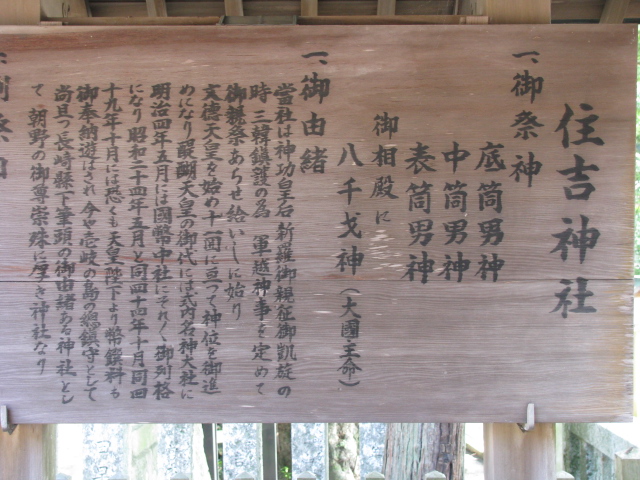 住吉神社
一、御祭神
底筒男神
中筒男神
表筒男神
御相殿に
八千戈神（大國主命）
一、御由緒
當社は神功皇后新羅御親征御凱旋の
時三韓鎮護の為軍越神事を定めて
御親祭あらせ給いしに始り
文德天皇を始め十一回に亘って神位を御進
めになり醍醐天皇の御代には式内名神大社に
明治四年五月には國幣中社にそれ〲御列格
になり昭和二十四年五月と同四十四年十月同四
十九年十月には恐くも天皇陛下より幣饌料を
御奉納遊ばされ今や壱岐の島の總鎮守として
尚且つ長崎縣下筆頭の御由緒ある神社とし
て朝野の御尊崇殊に厚き神社なり